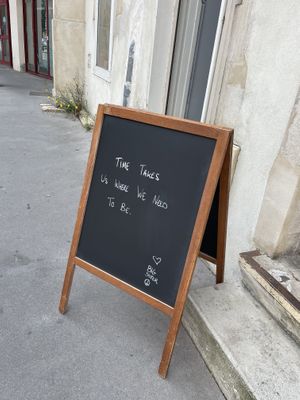 TIME TAKES
US WHERE WE NEED
TO BE.